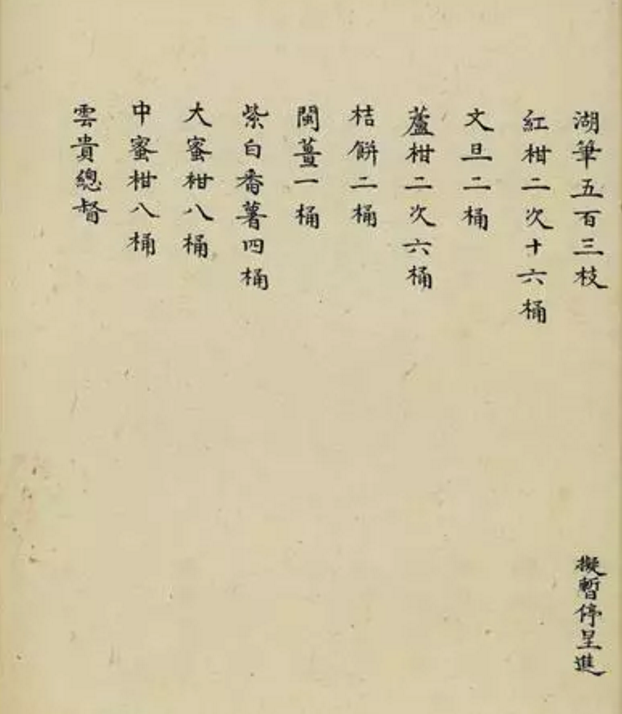 湖筆五百三枝
擬暫停呈進
紅柑二次十六桶
文旦二桶
蘆柑二次六桶
桔餅二桶
閩薑一桶
紫白番薯四桶
大蜜柑八桶
中蜜柑八桶
雲貴總督